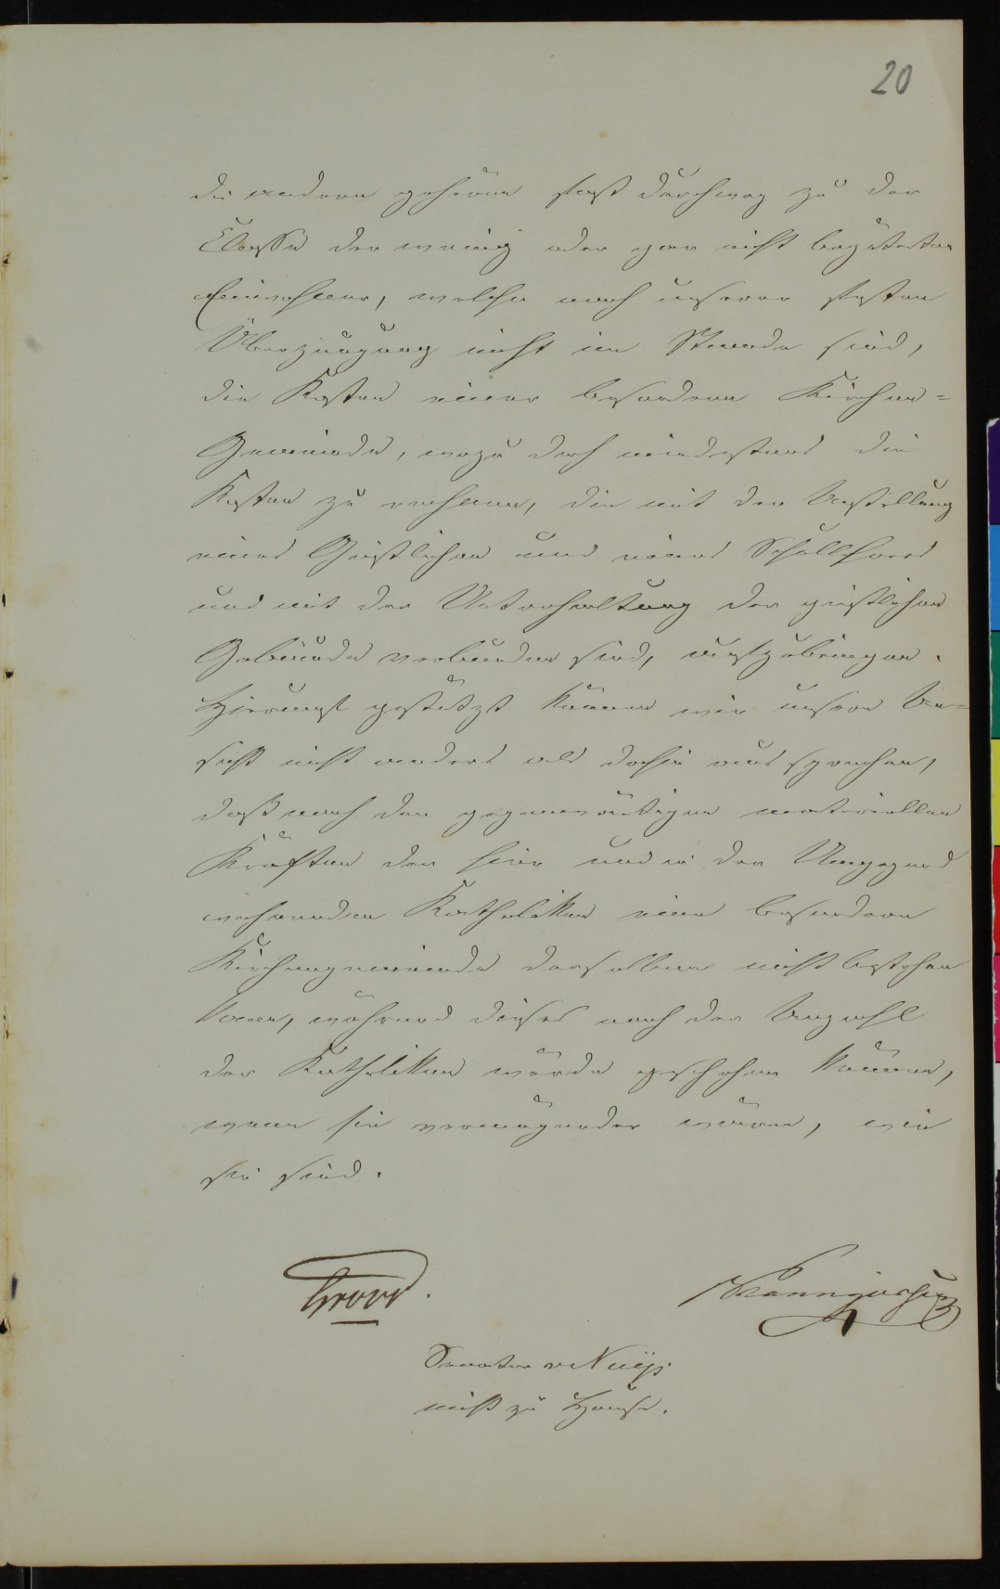 20
die andern gehören fast durchweg zu der
Classe der wenig oder gar nicht begüterten
Einwohner, welche nach unserer festen
Überzeugung nicht im Stande sind,
die Kosten einer besondern Kirchen=
Gemeinde, wozu doch mindestens die
Kosten zu rechnen, die mit der Anstellung
eines Geistlichen und eines Schullehrers
und mit der Unterhaltung der geistlichen
Gebäude verbunden sind, aufzubringen.
Hierauf gestützt können wir unsere An=
sicht nicht anders als dahin aussprechen,
daß nach den gegenwärtigen materiellen
Kräften der hier und in der Umgegend
wohnenden Katholiken eine besondere
Kirchengemeinde derselben nicht bestehen
kann, während dieses nach der Anzahl
der Katholiken würde geschehen können,
wenn sie vermögender wären, wie
sie sind.
Senator v Nuijs
nicht zu Hause.